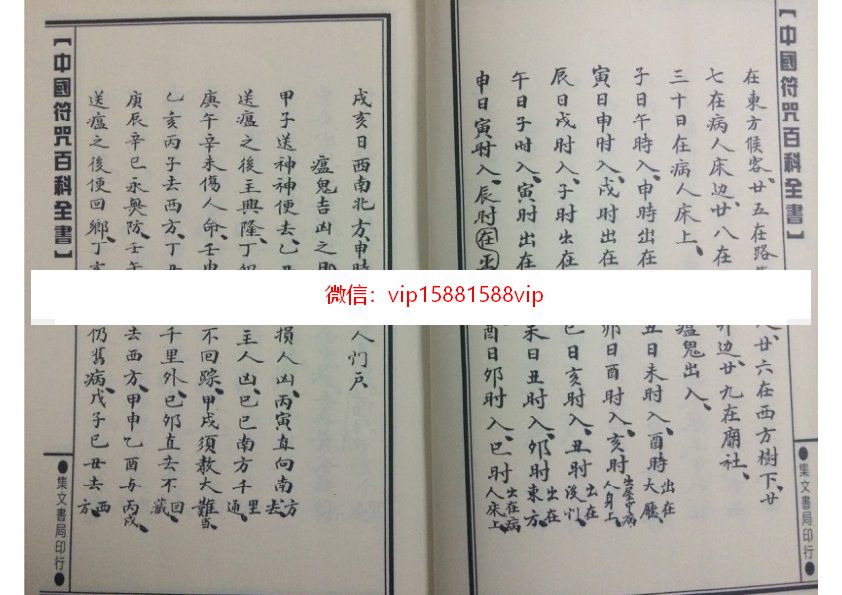 【中國符咒百科全書】
在東方候客、廿五在路
廿六在西方樹下、廿
七在病人床边、廿八在
边、廿九在廟社、
三十日在病人床上、
瘟鬼出入、
子日午時入、申時出在
丑日未时入、酉時出在大廳、
寅日申时入、戌时出在
卯日酉时入、亥时出屋中病人身上、
辰日戌时入、子时出在
巳日亥时入、丑时出在
午日子时入、寅时出在
未日丑时入、卯时出在東方、
申日寅时入、辰时在
酉日卯时入、巳时出在病人床上、
●集文書局印行●
微信：vip15881588vip
【中國符咒百科全書】
戌亥日西南北方、申時
人门戸、
瘟鬼吉凶之
甲子送神神便去、乙
損人凶、丙寅直向南方去、
送瘟之後主興隆、丁
主人凶、巳巳南方千里通、
庚午辛未傷人命、壬申
不回踪、甲戌須教大難當、
乙亥丙子去西方、丁
千里外、巳卯直去不回藏、
庚辰辛巳永無防、壬午
去西方、甲申乙酉与丙戌、
送瘟之後便回鄉、丁亥
仍舊病、戊子巳丑去西方、
●集文書局印行●